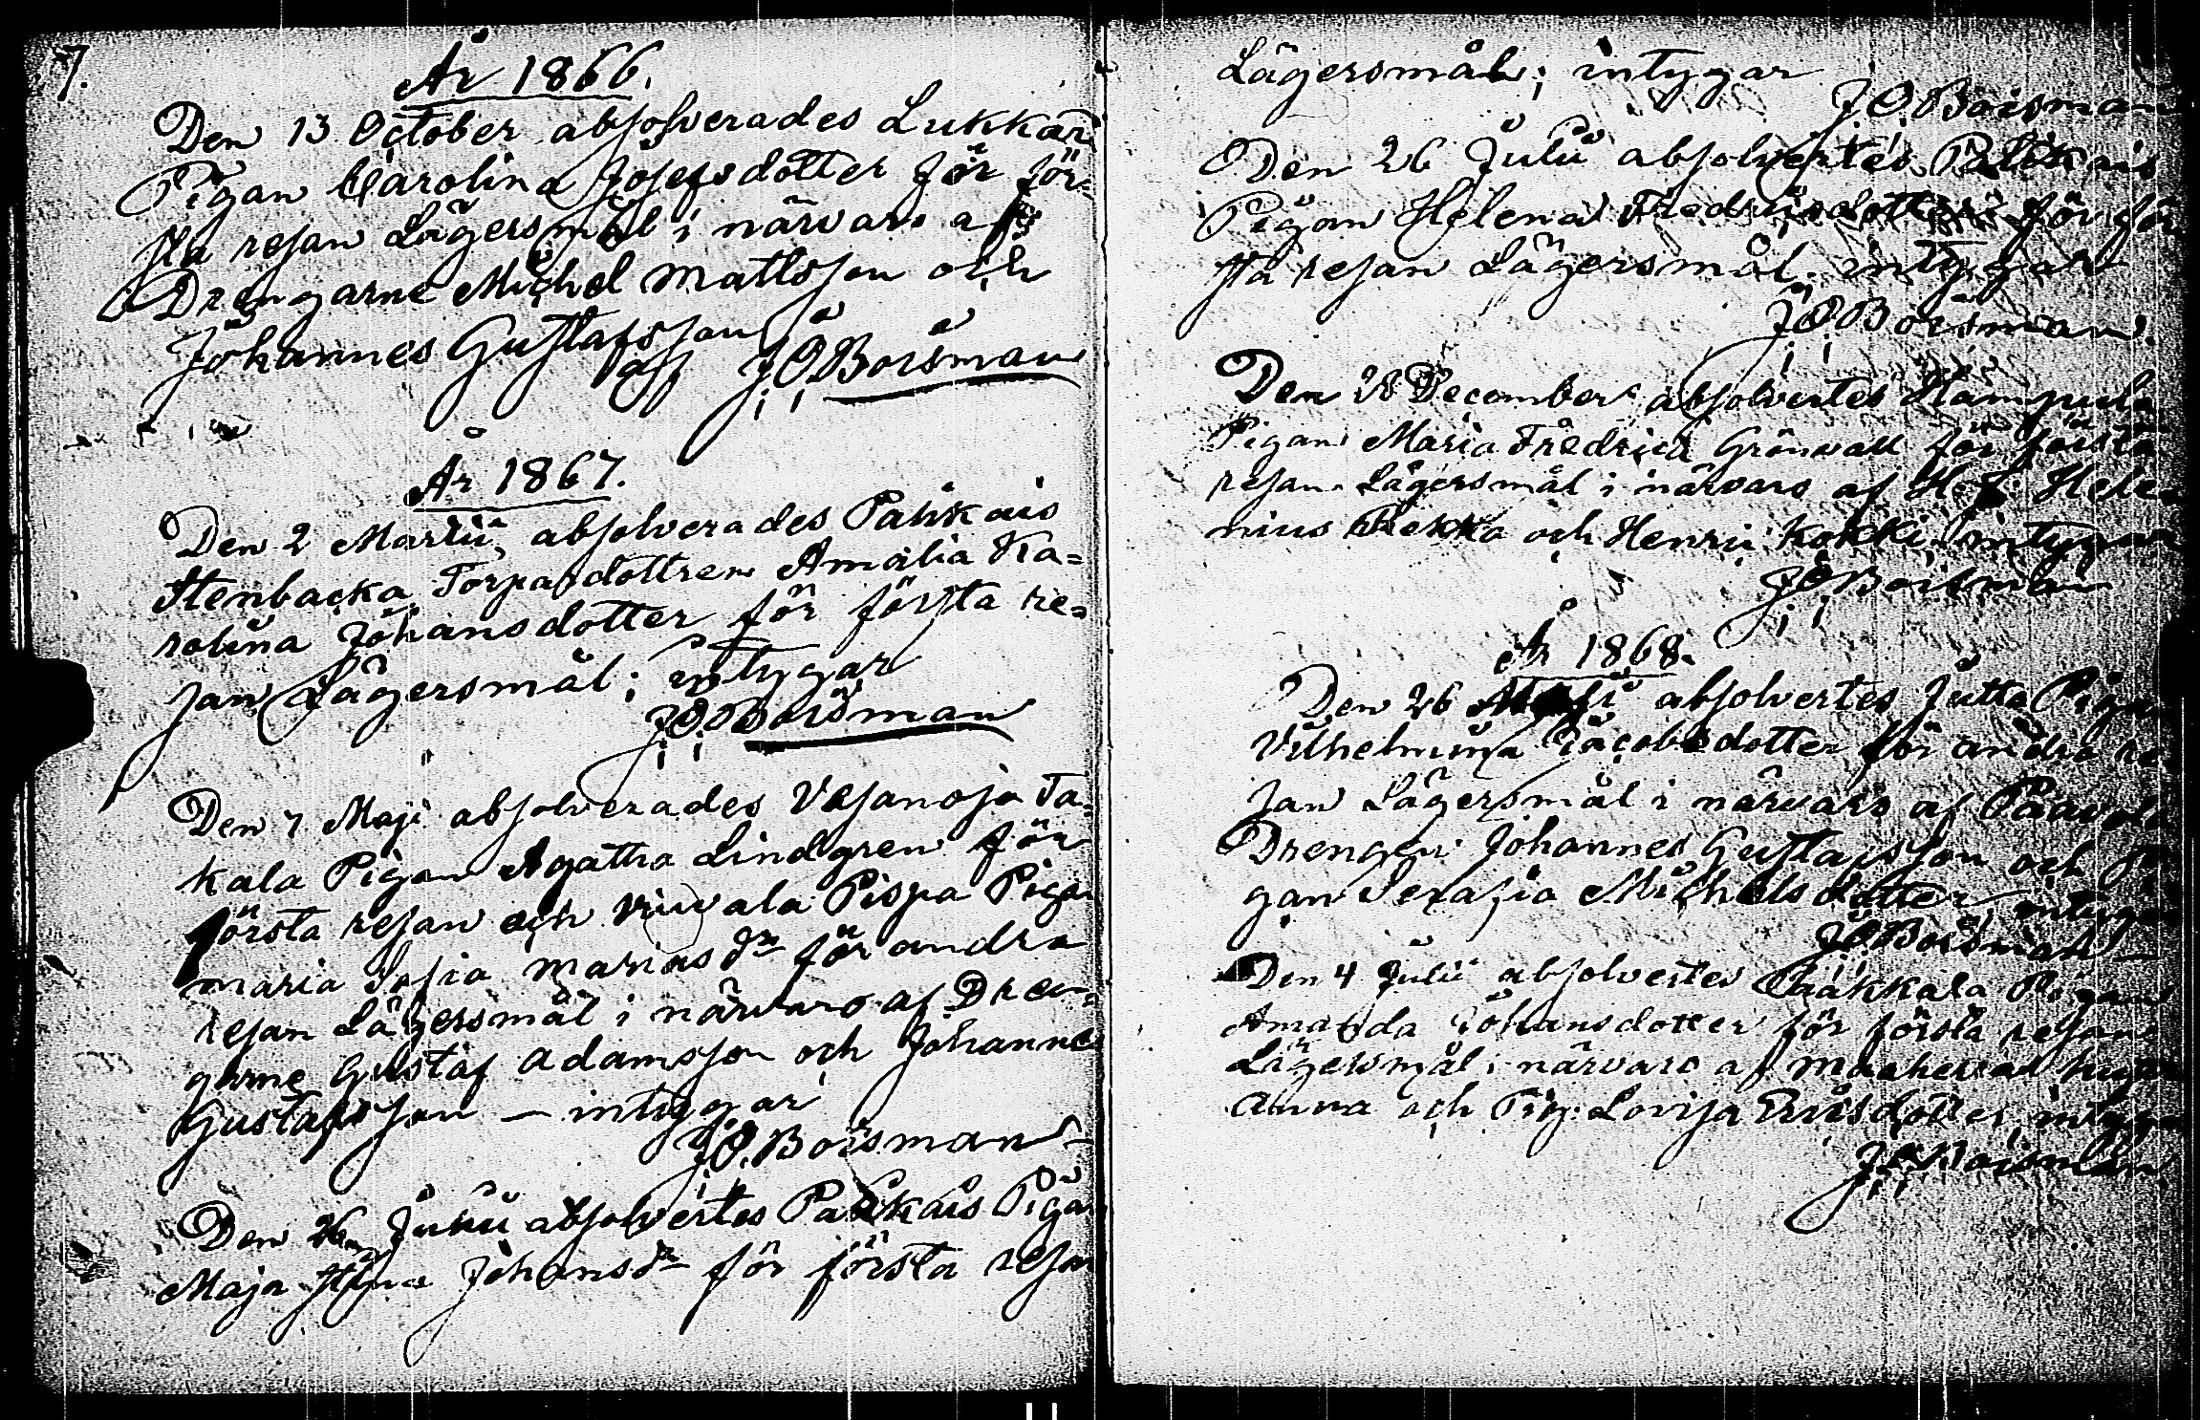 7.
År 1866.
Den 13 October absolverades Lukkari
Pigan Carolina Josefsdotter för för-
sta resan Lägersmål i närvaro af
Drengarne Michel Mattsson och
Johannes Gustafsson
af J O Boisman
År 1867.
Den 2 Martii absolverades Pahkais
Stenbacka Torpardottren Amalia Ka=
rolina Johansdotter för första re=
san Lägersmål; intygar
J O Boisman
Den 7 Maji absolverades Vesanoja Ta=
kala Pigan Agatha Lindgren för
första resan och Pispa Pigan
Maria Sofia Mariasdr för andra
resan Lägersmål i närvaro af Dren=
garne Gustaf Adamsson och Johannes
Gustafsson – intygar
J O Boisman
Den 26 Junii absolvertes Pahkais Pigan
Maja Stina Johansdr för första resan
Lägersmål; intygar
J O Boisman
Den 26 Julii absolvertes Pahkais
Pigan Helena Fredriksdotter för för
sta resan Lägersmål. intygar
J O Boisman.
Den 28 December absolvertes Hampula
Pigan Maria Fredrica Grönvall för första
resan Lägersmål i närvaro af Hele-
nius Pekka och Henric Kokki, intygar
J O Boisman
År 1868.
Den 26 absolvertes Jutta Pigan
Vilhelmina Jacobsdotter för andra re-
san Lägersmål i närvaro af Paavola
Drengen Johannes Gustafsson och Pi
gan Serafia Michelsdotter, intygar
J O Boisman
Den 4 Julii absolvertes Pigan
Amanda Johansdotter för första resan
Lägersmål i närvaro af
Anna och Pig. Lovisa Ericsdotter, intygar
J O Boisman